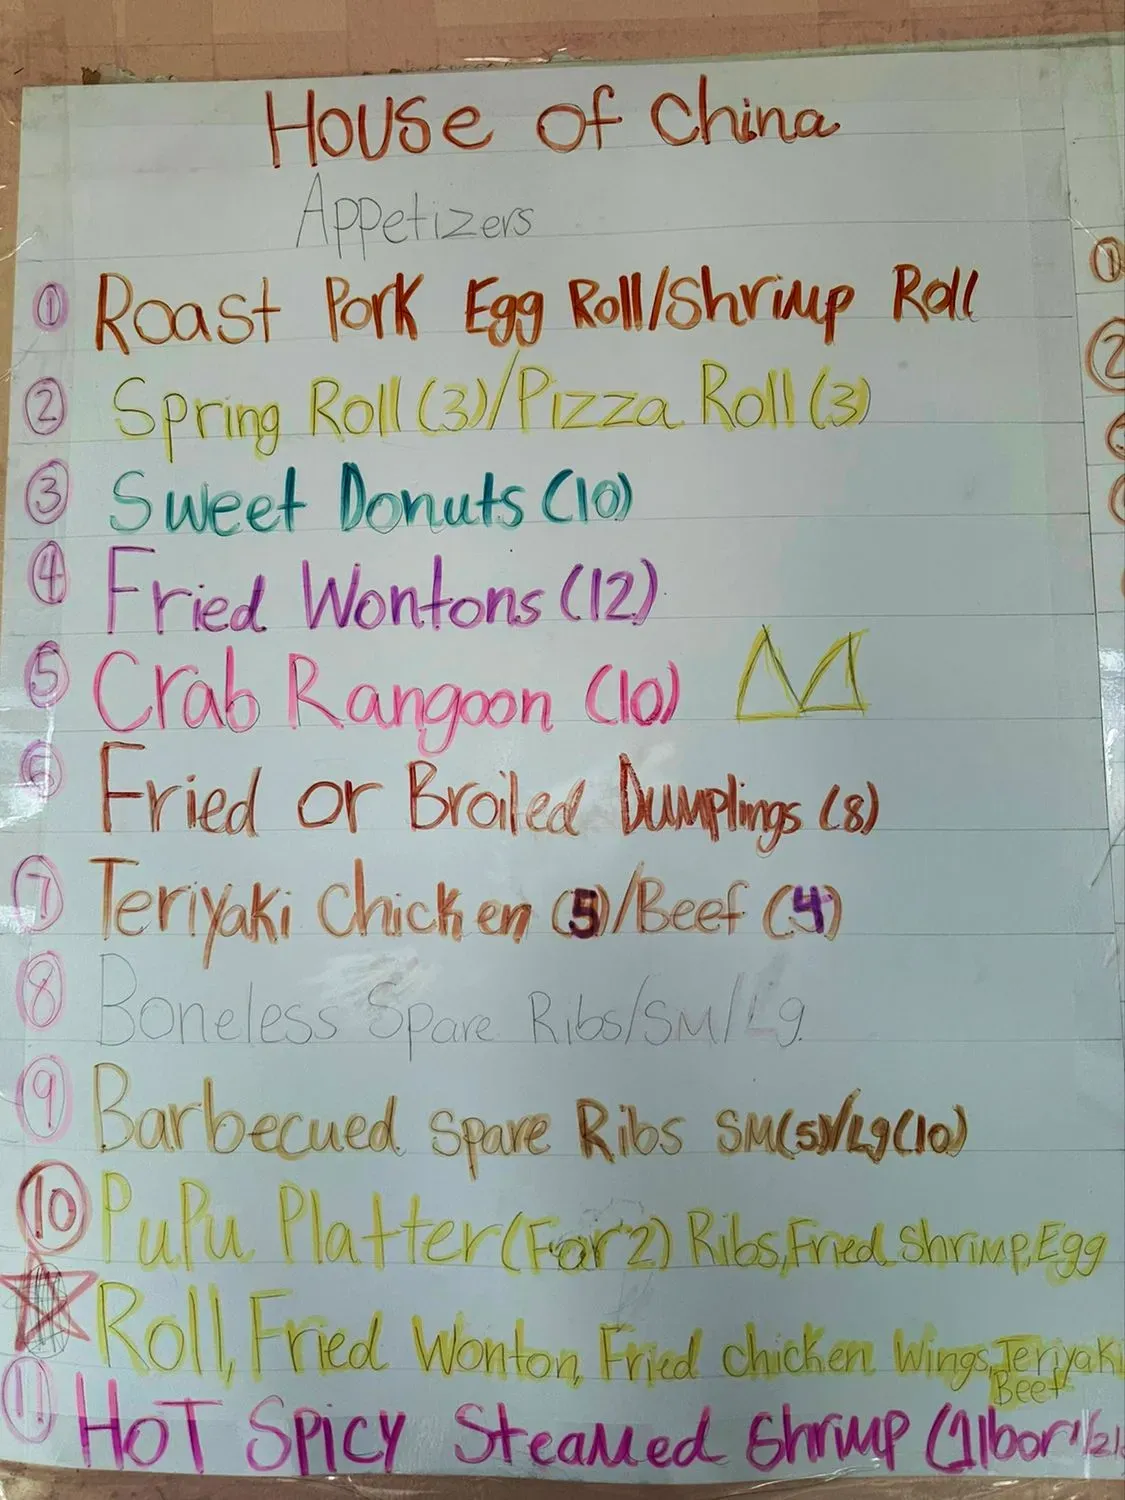 House of China
Appetizers
① Roast Pork Egg Roll/Shrimp Roll
② Spring Roll (3)/Pizza Roll (3)
③ Sweet Donuts (10)
④ Fried Wontons (12)
⑤ Crab Rangoon (10)
⑥ Fried or Broiled Dumplings (8)
⑦ Teriyaki Chicken (5)/Beef (4)
⑧ Boneless Spare Ribs/SM/Lg
⑨ Barbecued Spare Ribs SM(5)/Lg(10)
⑩ PuPu Platter (For 2) Ribs, Fried Shrimp, Egg
Roll, Fried Wonton, Fried Chicken Wings, Teriyaki
Beef
⑪ HOT SPICY Steamed Shrimp (1lb or 1/2lb
①
②